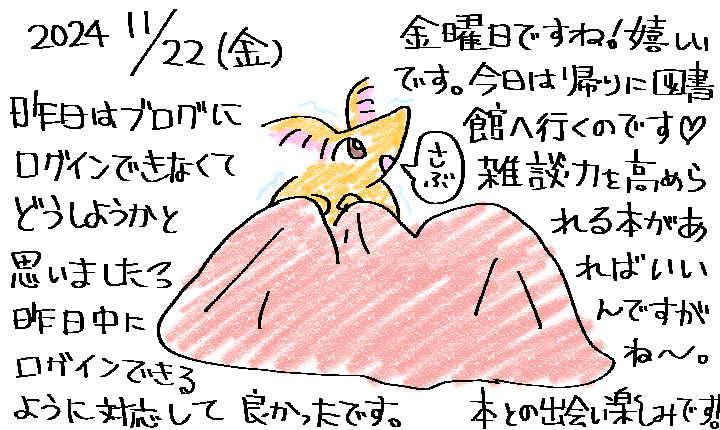 2024 11/22(金)
昨日はブログに
ログインできなくて
どうしようかと
思いましたろ
昨日中に
ログインできる
ように対応して 良かったです。
さぶ
金曜日ですね!嬉しい
です。今日は帰りに図書
館へ行くのです♡
雑談力を高めら
れる本があ
ればいい
んですが
ね〜。
本との出会い楽しみです!